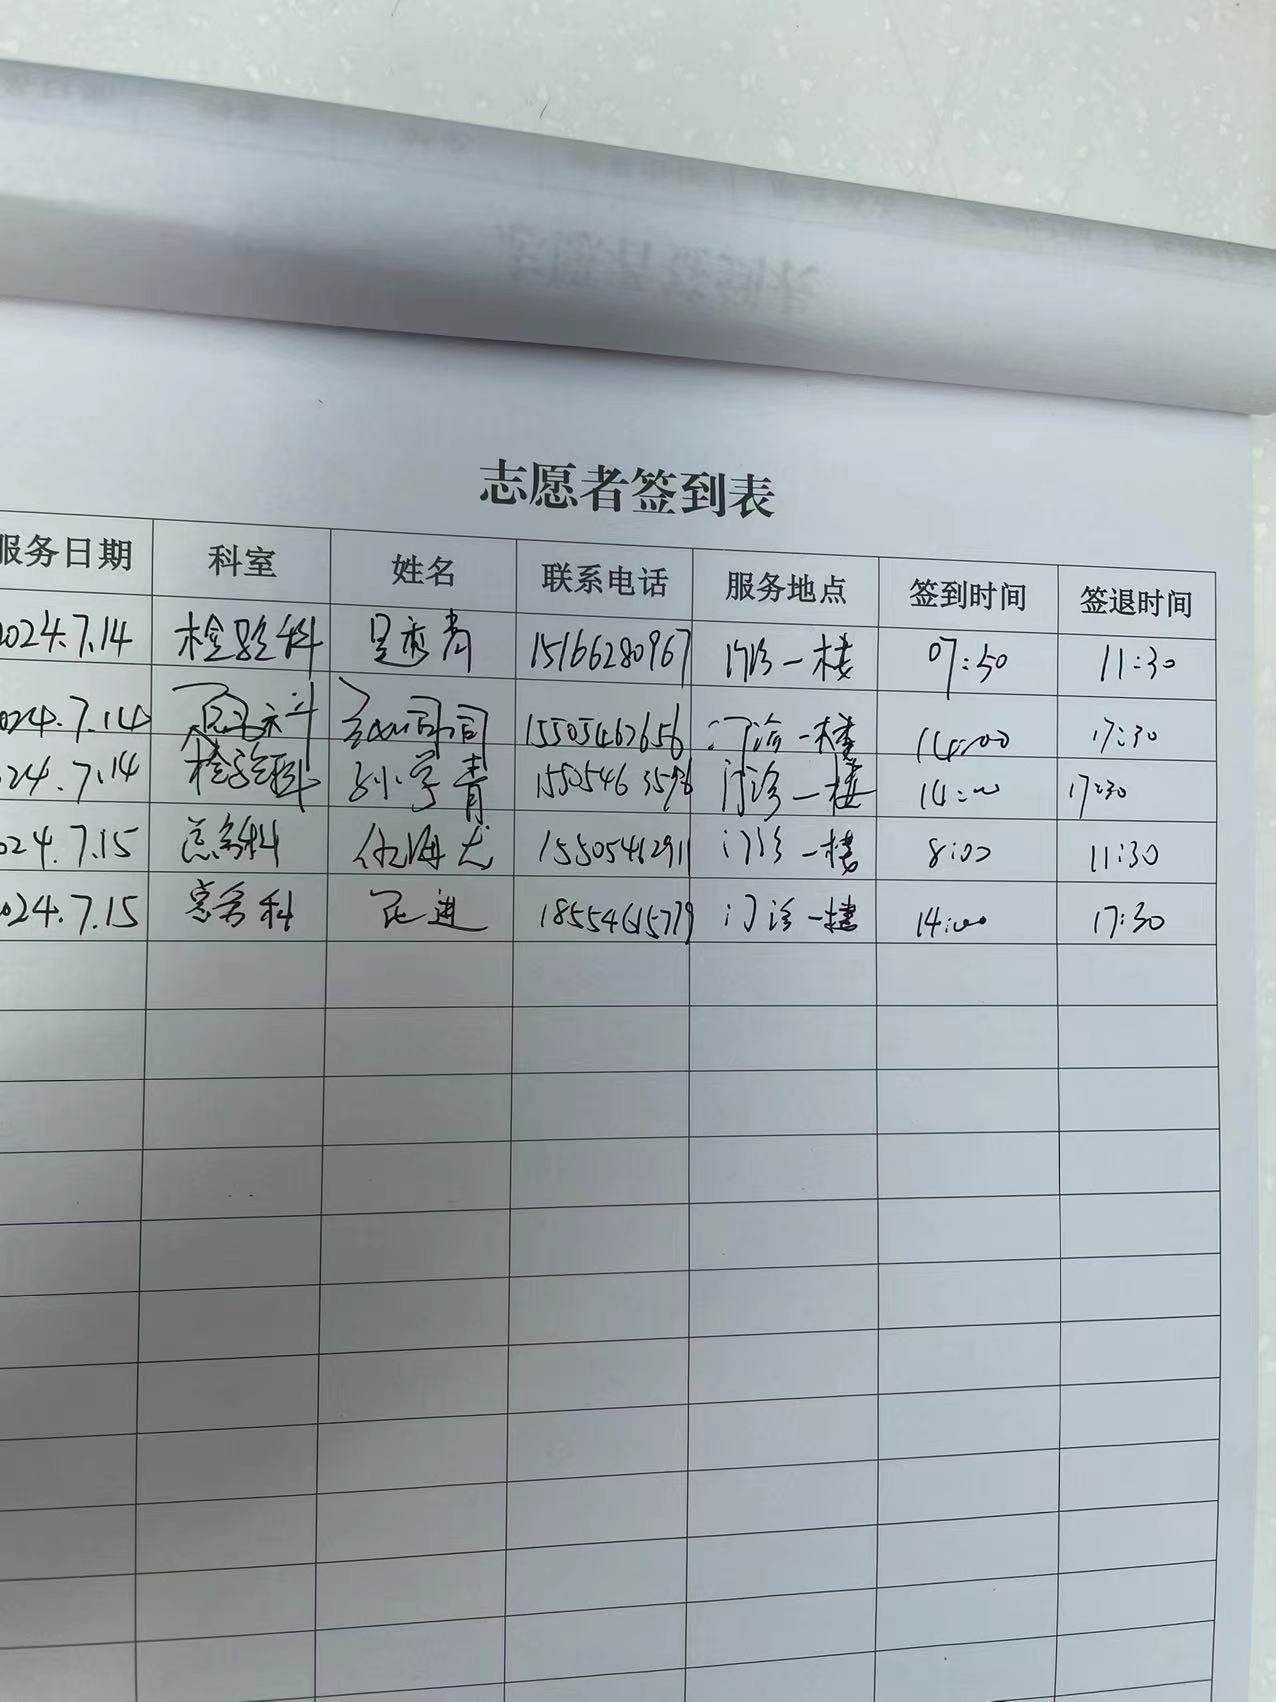 志愿者签到表
服务日期 科室 姓名 联系电话 服务地点 签到时间 签退时间
2024.7.14 检验科 15166280967 门诊一楼 07:50 11:30
024.7.14 司司 15505462656 门诊一楼 14:00 17:30
24.7.14 检验科 孙学青 门诊一楼 14:00 17:30
024.7.15 15505462911 门诊一楼 8:00 11:30
024.7.15 进 18554615779 门诊一楼 14:00 17:30